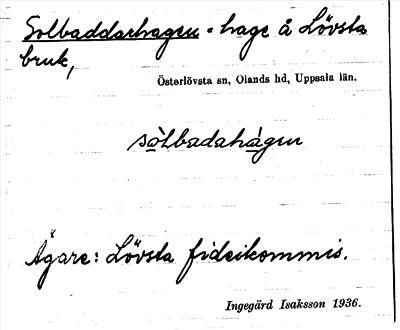 Solbaddarhagen - hage å Lövsta
bruk,
Österlövsta sn, Olands hd, Uppsala län.
sò̀lbadahàgen
Ägare: Lövsta fideikommis.
Ingegärd Isaksson 1936.